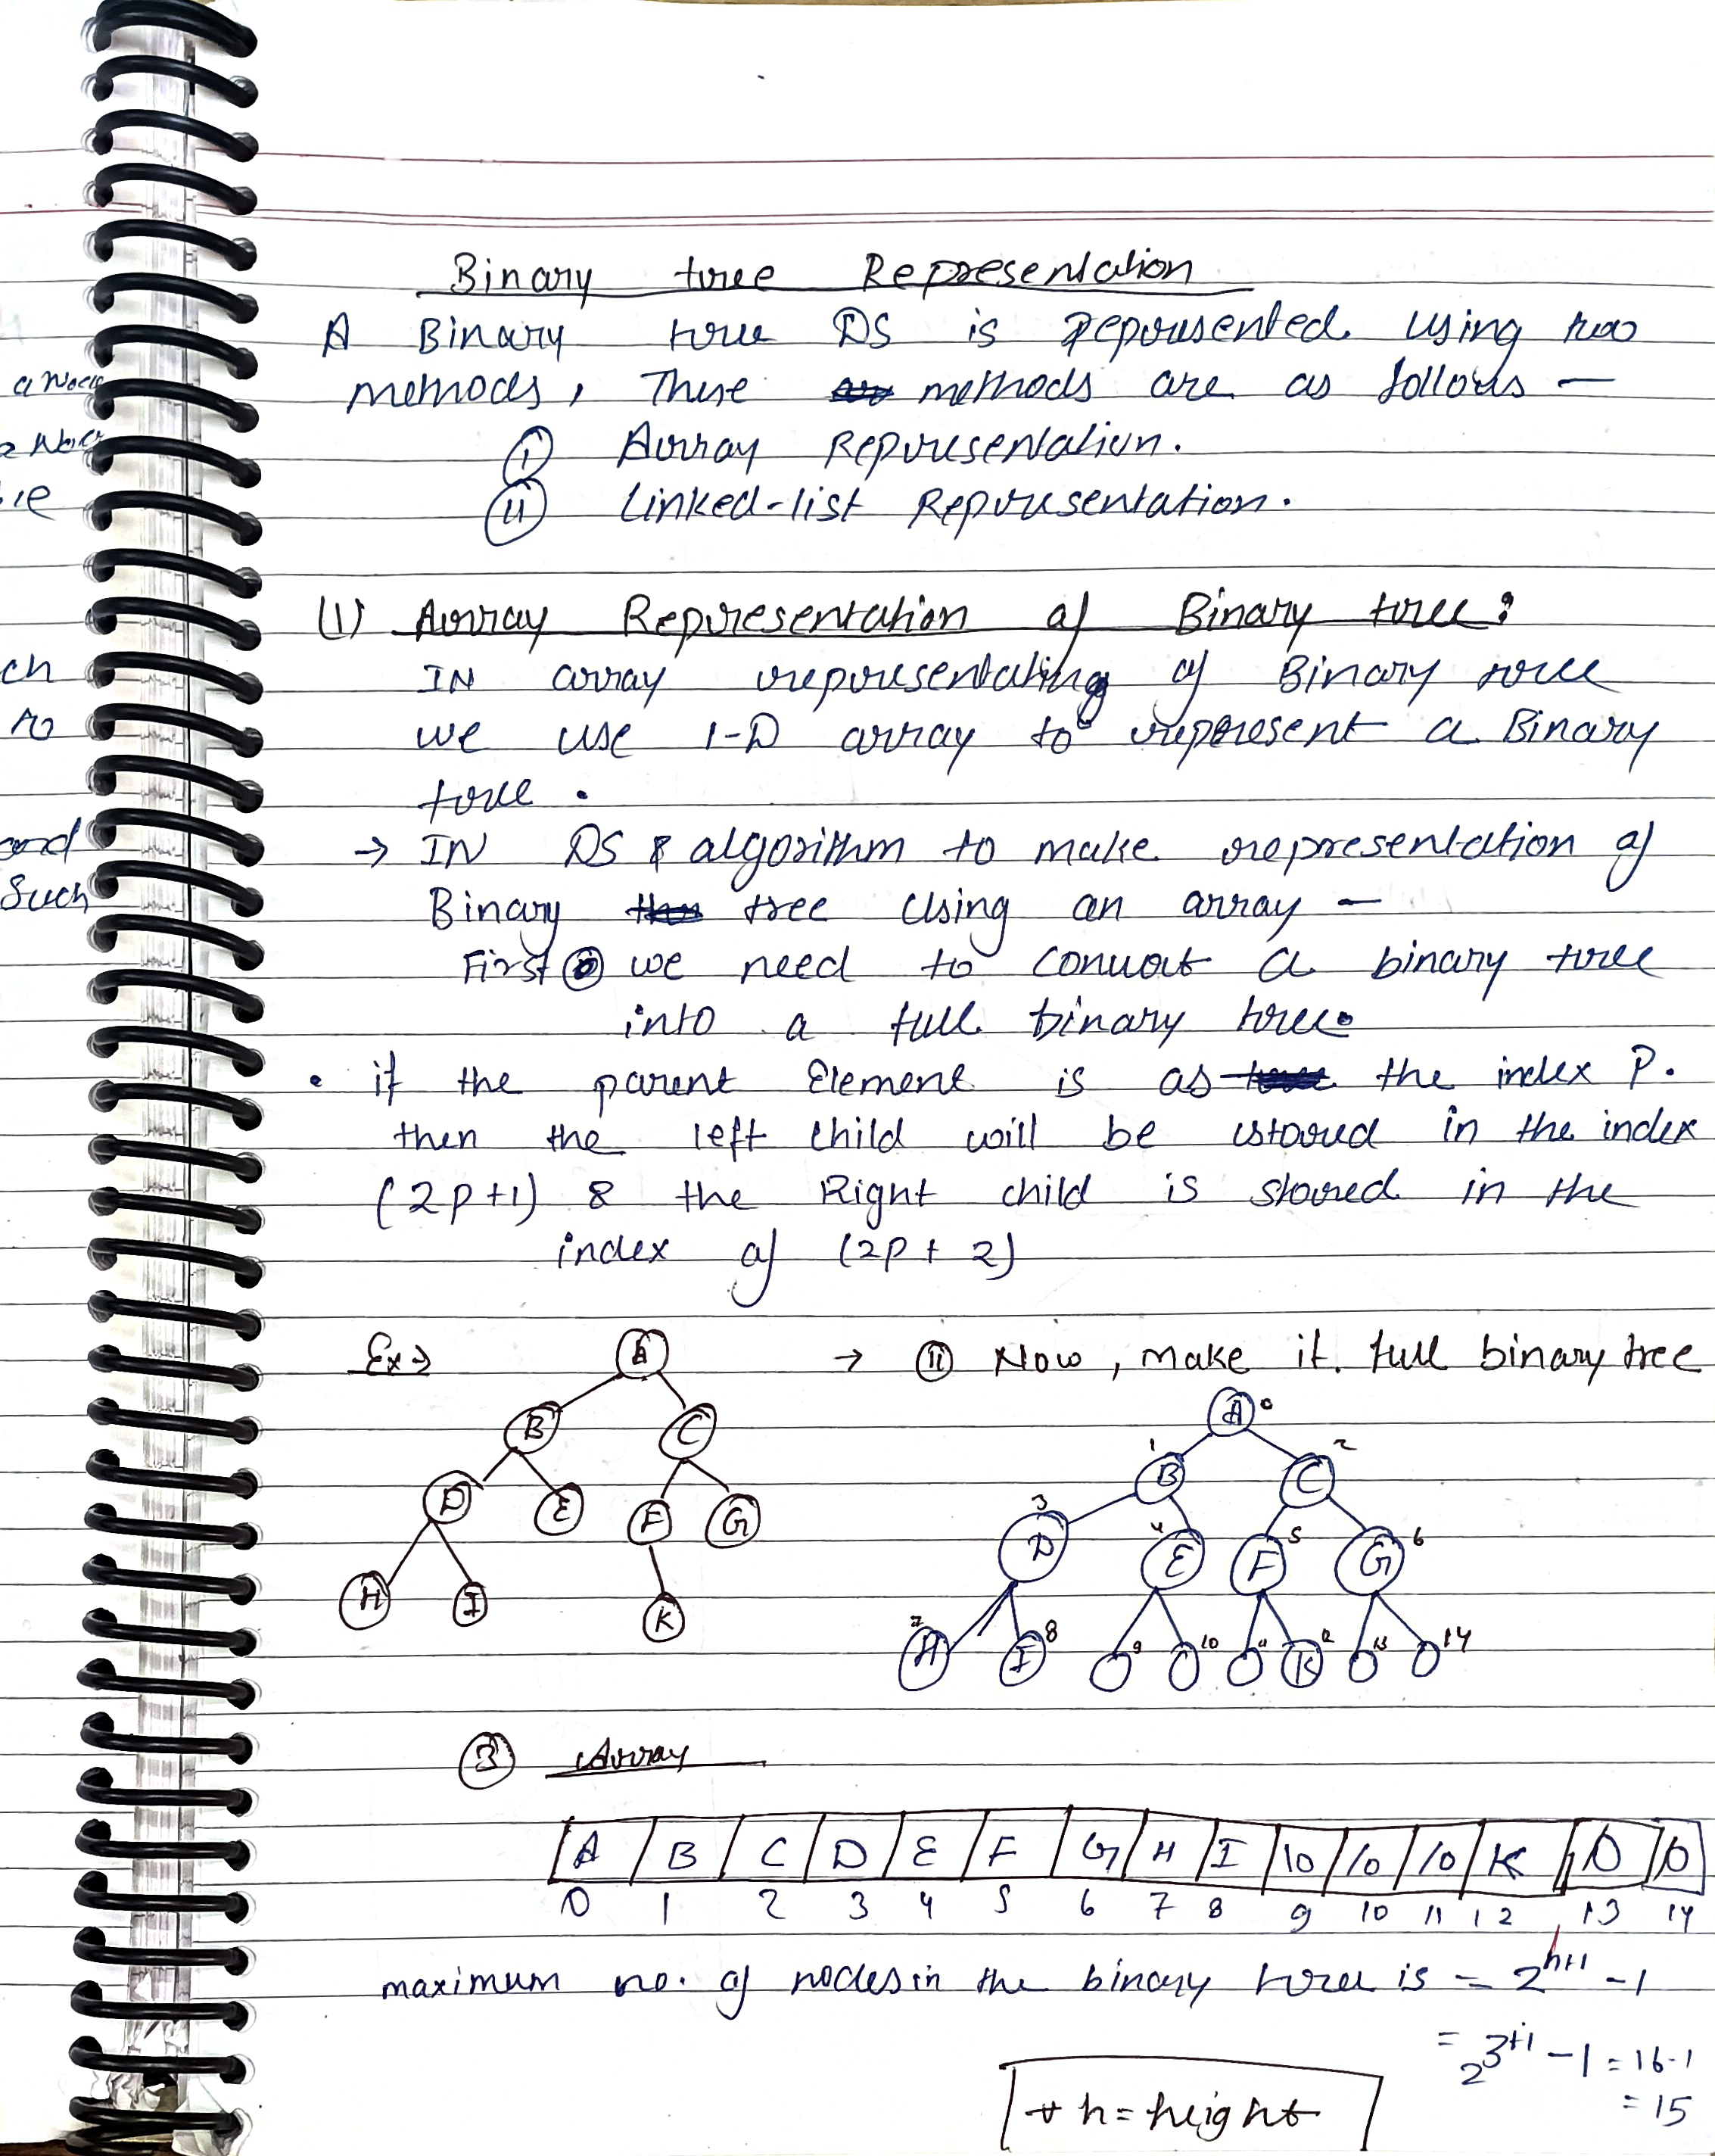 Binary tree Representation
A Binary tree DS is represented using two
methods, These methods are as follows —
(i) Array Representation.
(ii) Linked-list Representation.
(1) Array Representation of Binary tree:
IN array representating of Binary tree
we use 1-D array to represent a Binary
tree.
→ IN DS & algorithm to make representation of
Binary tree Using an array —
First we need to convert a binary tree
into a full binary tree.
• if the parent Element is as the index P.
then the left child will be stored in the index
(2p+1) & the Right child is stored in the
index of (2p+2)
Ex→
A
B C
D E F G
H I K
→ (II) Now, make it full binary tree
A 0
1 B C 2
3 D 4 E F 5 G 6
7 H I 8 9 10 11 K 12 13 14
(3) Array
A B C D E F G H I \0 \0 \0 K \0 \0
0 1 2 3 4 5 6 7 8 9 10 11 12 13 14
maximum no. of nodes in the binary tree is = 2^{h+1} - 1
= 2^{3+1} - 1 = 16-1
= 15
* h = height
a Node
and
Such
ch
to